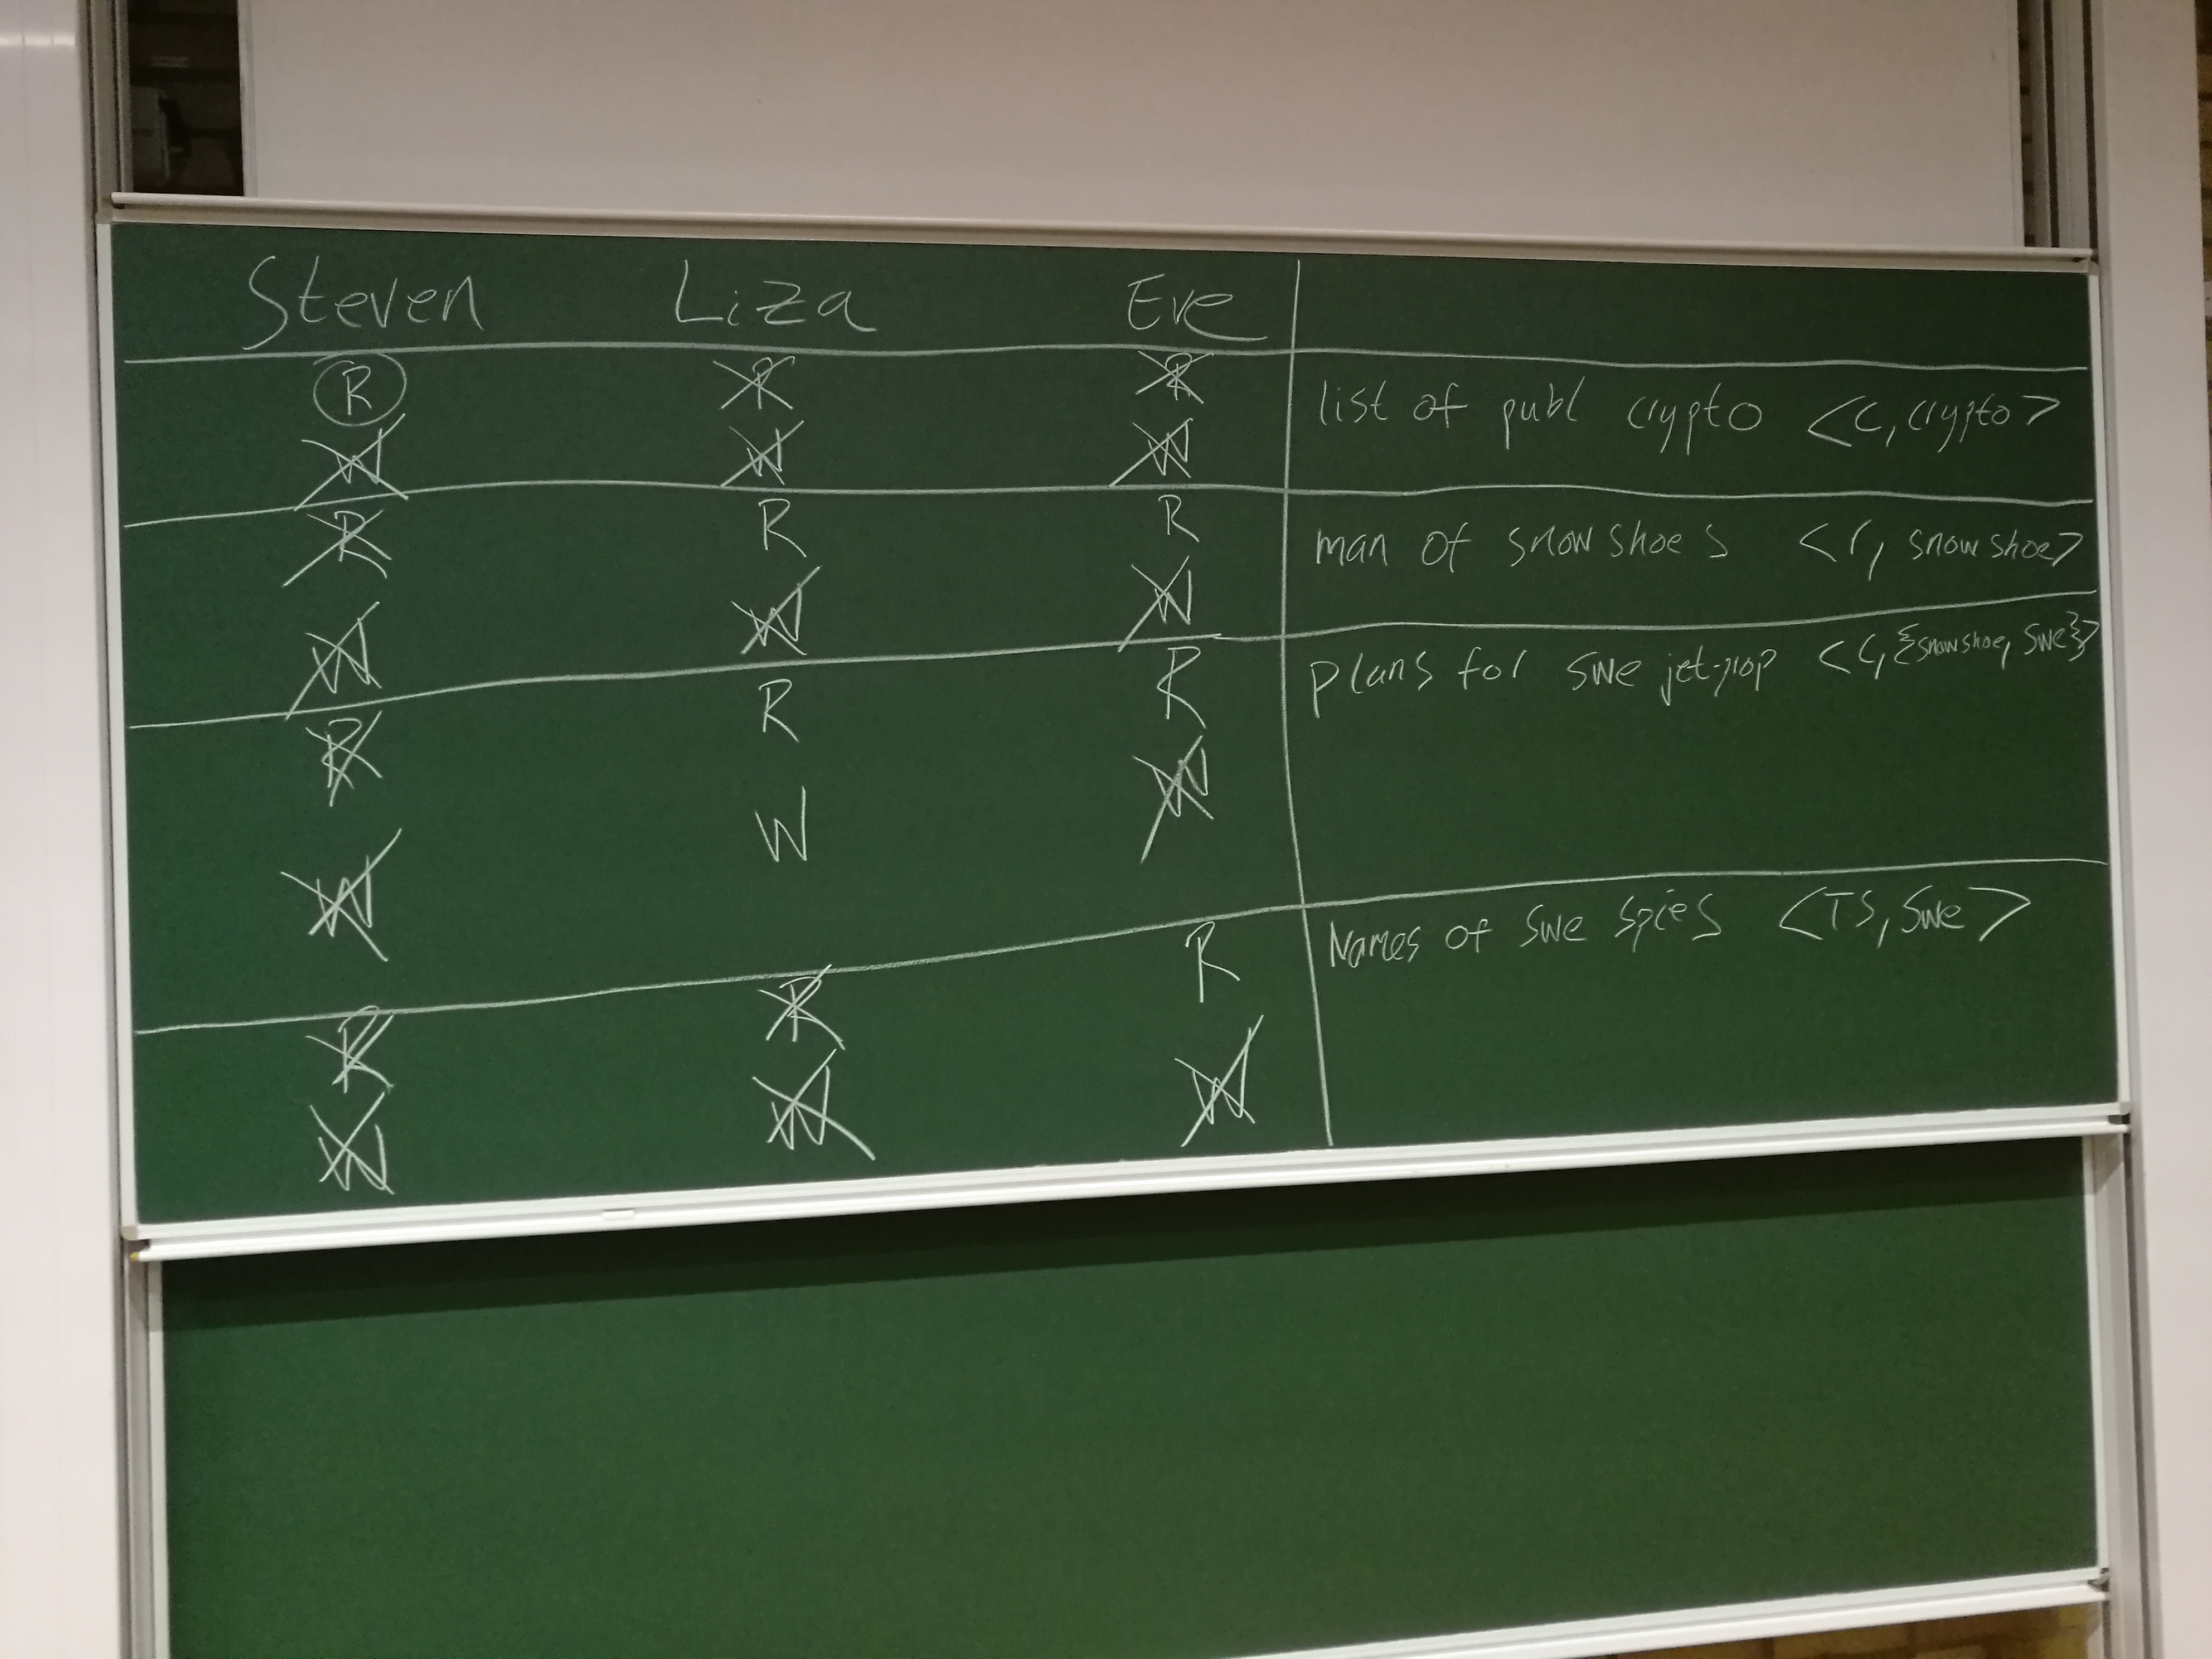 Steven Liza Eve
R R R list of publ crypto <C, crypto>
W W W
R R R man of snowshoes <r, snowshoe>
W W W
R R R plans for swe jet-prop <C, {snowshoe, swe}>
W W W
R R R Names of swe spies <TS, swe>
W W W